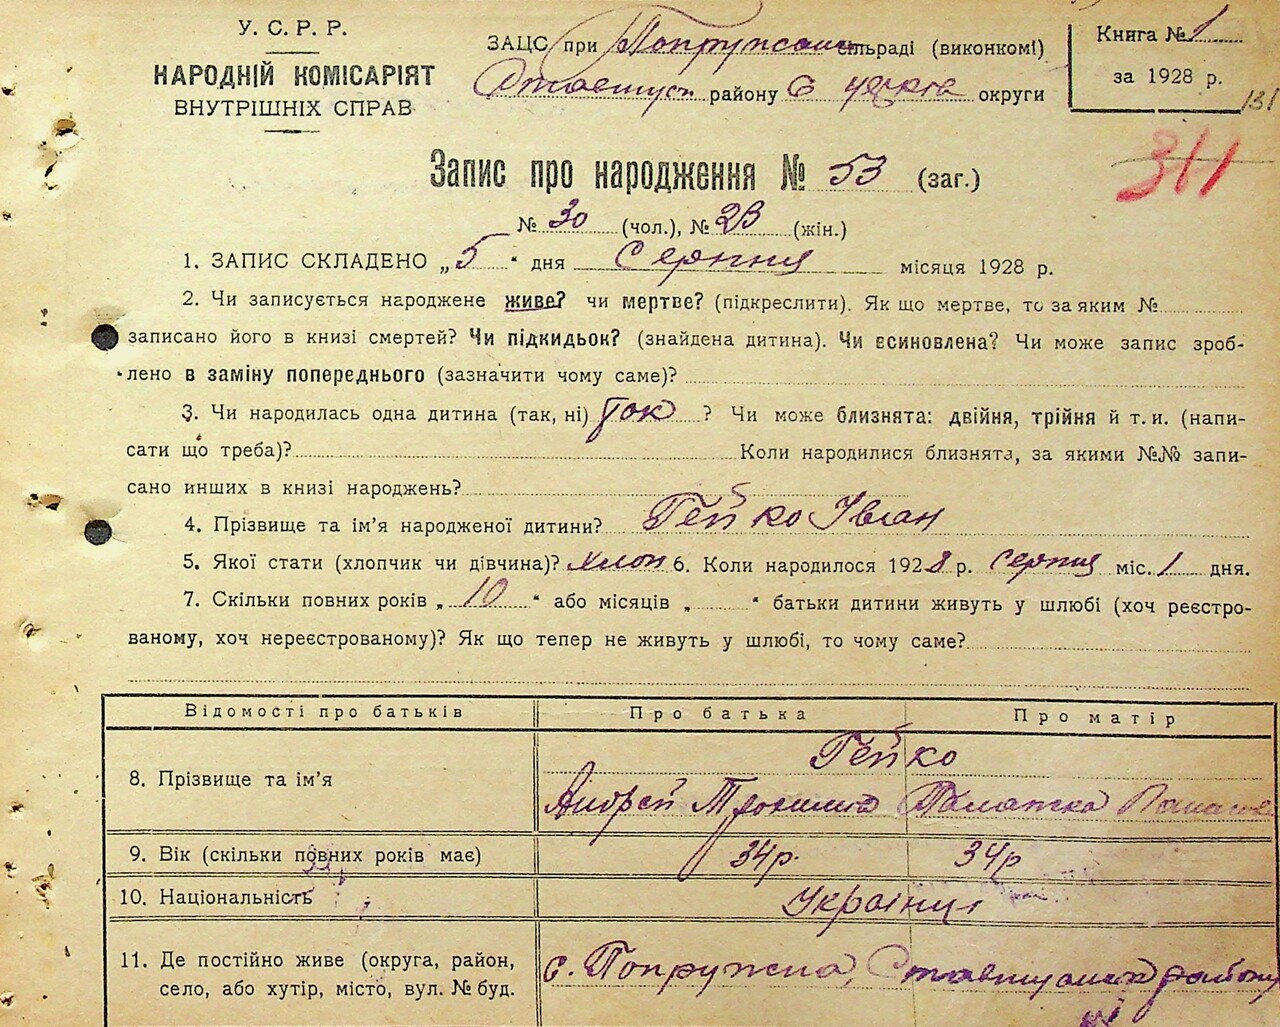 У. С. Р. Р.
НАРОДНІЙ КОМІСАРІЯТ
ВНУТРІШНІХ СПРАВ
ЗАЦС при Попружсан сільраді (виконкомі)
району округи
Книга № 1
за 1928 р.
131
311
Запис про народження № 53 (заг.)
№ 30 (чол.), № 23 (жін.)
1. ЗАПИС СКЛАДЕНО „5“ дня Серпня місяця 1928 р.
2. Чи записується народжене живе? чи мертве? (підкреслити). Як що мертве, то за яким №
записано його в книзі смертей? Чи підкидьок? (знайдена дитина). Чи всиновлена? Чи може запис зроб-
лено в заміну попереднього (зазначити чому саме)?
3. Чи народилась одна дитина (так, ні) Так ? Чи може близнята: двійня, трійня й т. и. (напи-
сати що треба)? Коли народилися близнята, за якими №№ запи-
сано инших в книзі народжень?
4. Прізвище та ім'я народженої дитини? Гейко Іван
5. Якої стати (хлопчик чи дівчина)? хлоп 6. Коли народилося 1928 р. серпня міс. 1 дня.
7. Скільки повних років „10“ або місяців „ “ батьки дитини живуть у шлюбі (хоч реєстро-
ваному, хоч нереєстрованому)? Як що тепер не живуть у шлюбі, то чому саме?
Відомості про батьків Про батька Про матір
8. Прізвище та ім'я Гейко
Андрей
9. Вік (скільки повних років має) 34р. 34р
10. Національність Українці
11. Де постійно живе (округа, район,
село, або хутір, місто, вул. № буд.
с. Попружна, Ставищанск району